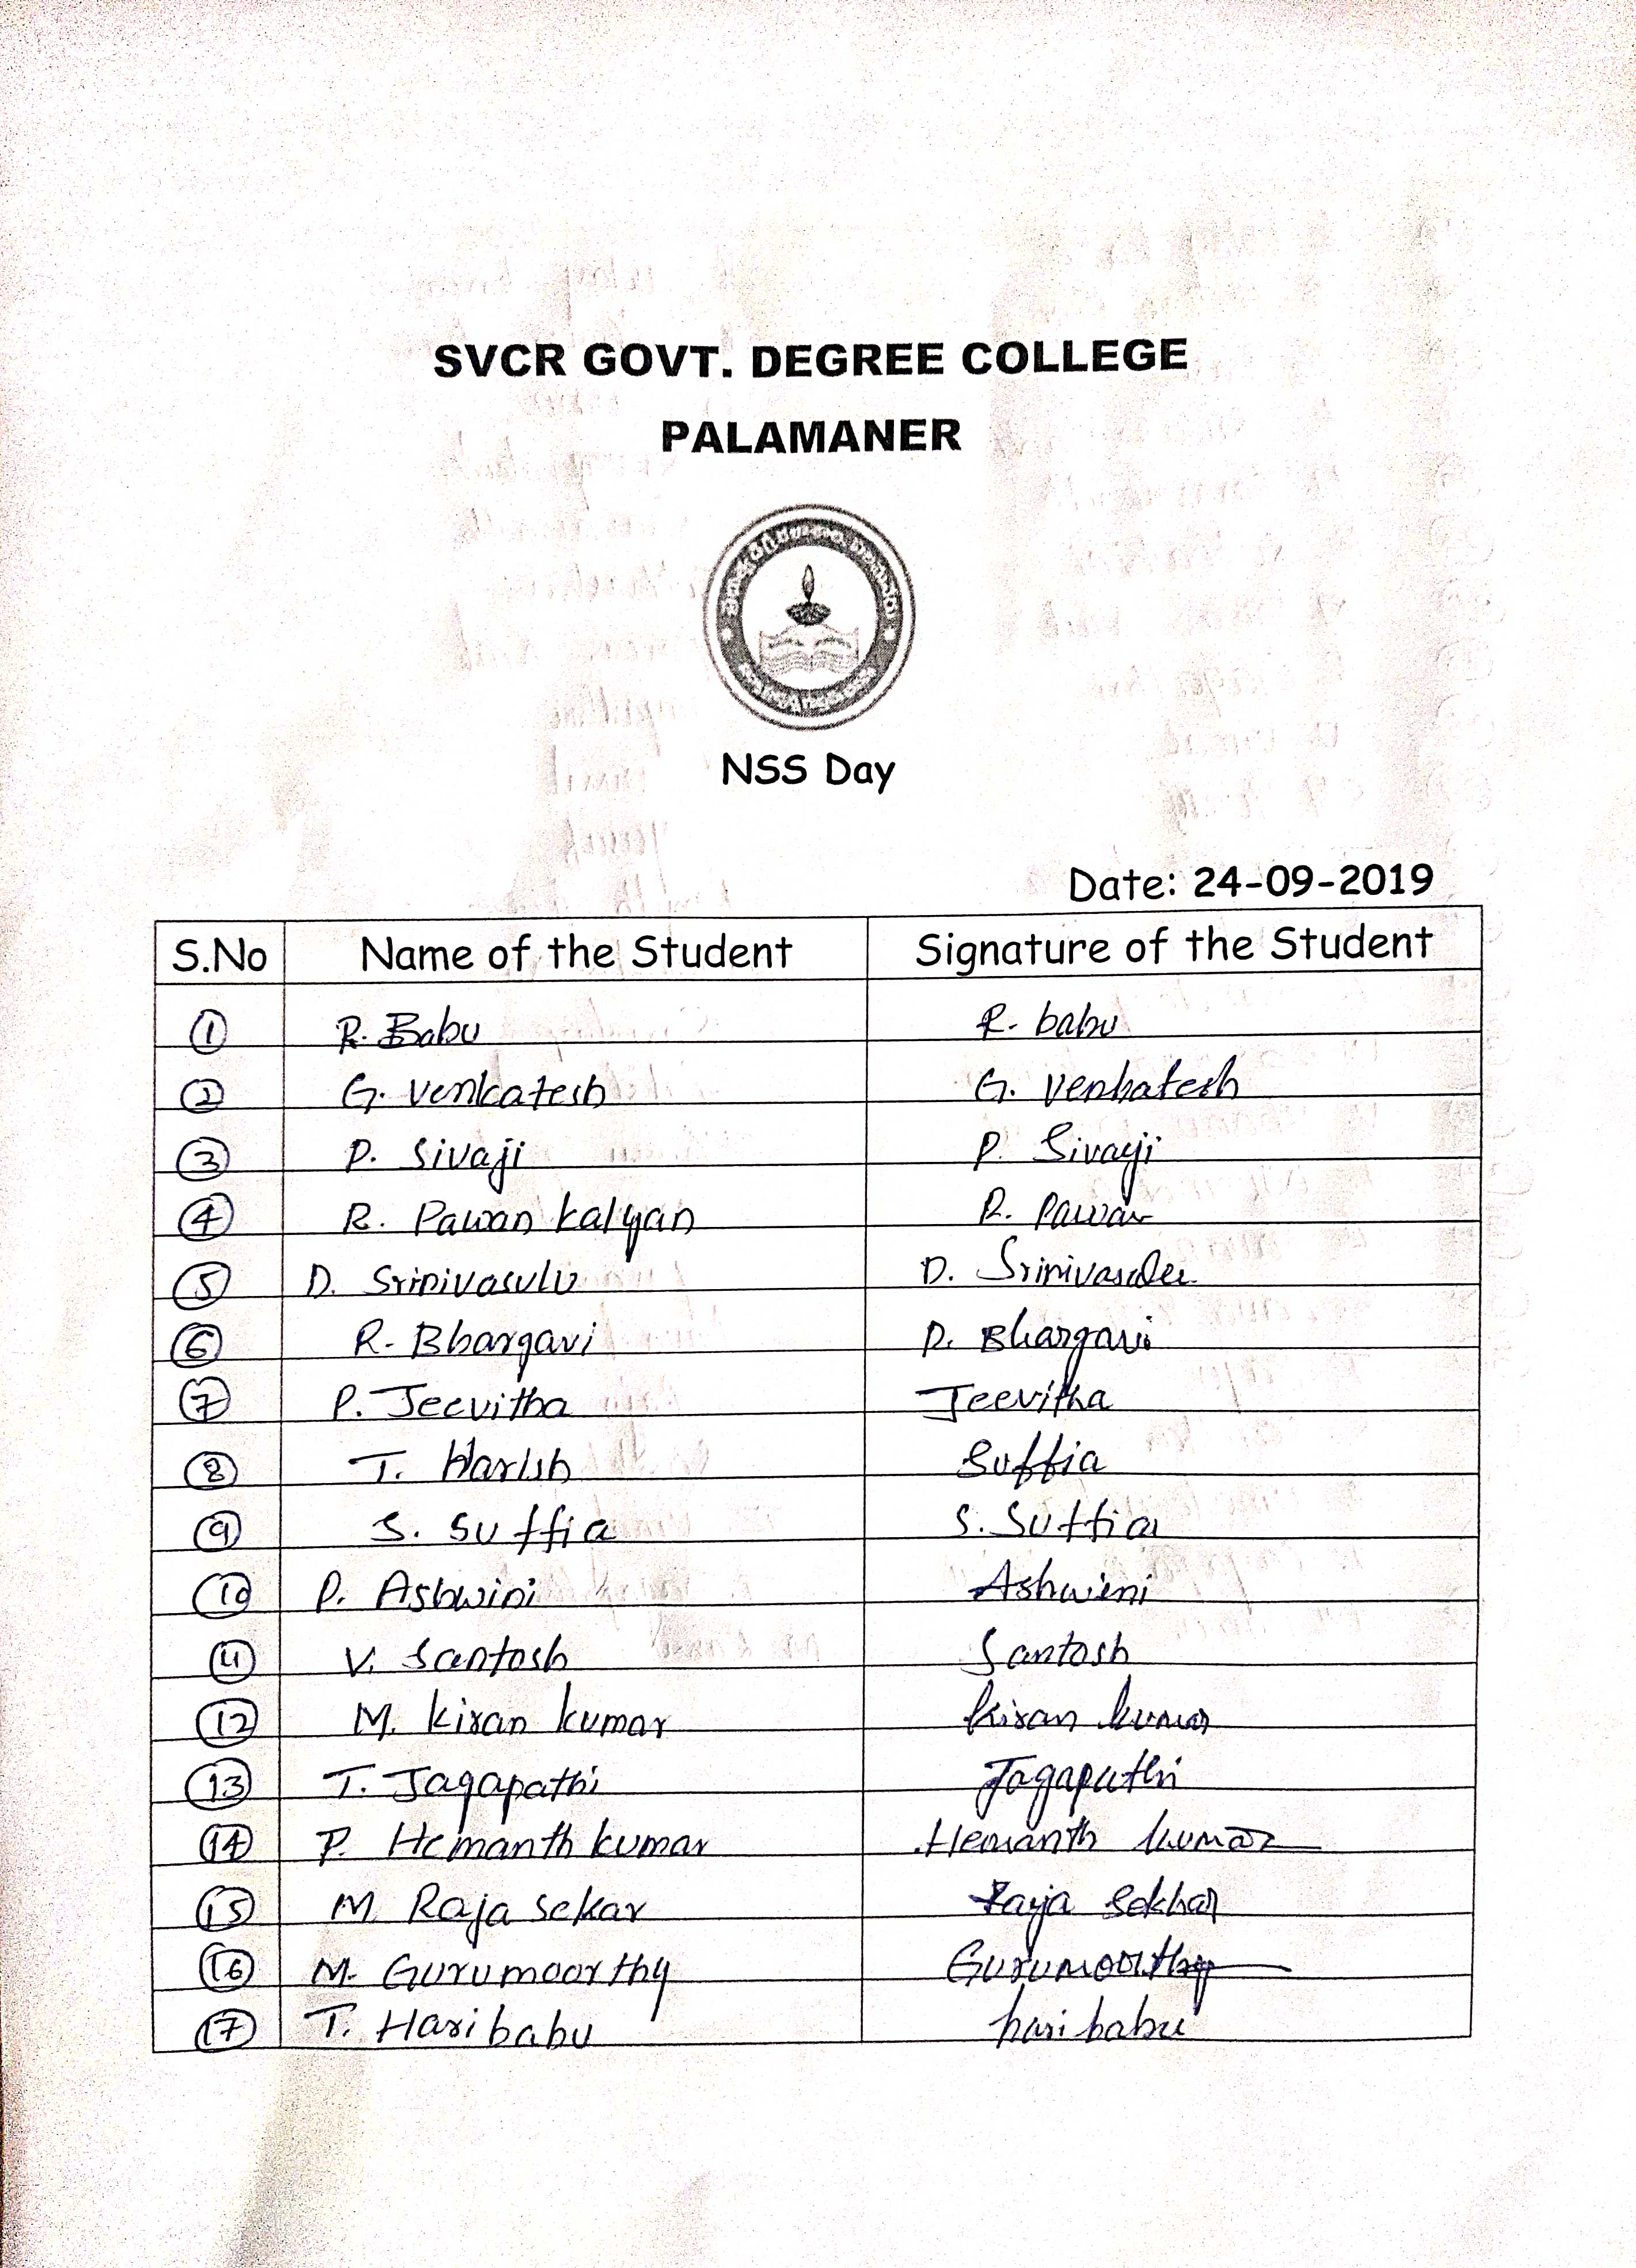 SVCR GOVT. DEGREE COLLEGE
PALAMANER
NSS Day
Date: 24-09-2019
S.No Name of the Student Signature of the Student
1 R. Babu R. babu
2 G. Venkatesh G. Venkatesh
3 P. Sivaji P. Sivaji
4 R. Pawan kalyan R. Pawan
5 D. Srinivasulu D. Srinivasulu
6 R. Bhargavi R. Bhargavi
7 P. Jeevitha Jeevitha
8 T. Harish Suffia
9 S. Suffia S. Suffia
10 P. Ashwini Ashwini
11 V. Santosh Santosh
12 M. kiran kumar kiran kumar
13 T. Jagapathi Jagapathi
14 P. Hemanth kumar Hemanth kumar
15 M. Raja sekar Raja Sekhar
16 M. Gurumoorthy Gurumoorthy
17 T. Haribabu haribabu